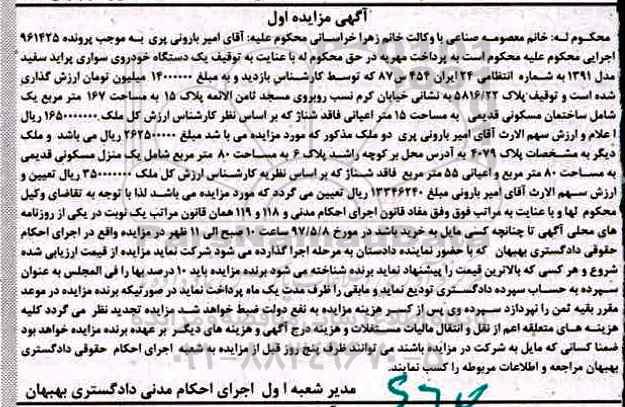 آگهی مزایده اول
محکوم له: خانم معصومه صناعی با وکالت خانم زهرا خراسانی محکوم علیه: آقای امیر بارونی پری به موجب پرونده ۹۶۱۴۲۵
اجرایی محکوم علیه محکوم است به پرداخت مهریه در حق محکوم له با عنایت به توقیف یک دستگاه خودروی سواری پراید سفید
مدل ۱۳۹۱ به شماره انتظامی ۲۴ ایران ۴۵۴ س ۸۷ که توسط کارشناس بازدید و به مبلغ ۱۴۰۰۰۰۰۰ میلیون تومان ارزش گذاری
شده است و توقیف پلاک ۵۸۱۶/۲۲ به نشانی خیابان کرم نسب روبروی مسجد ثامن الائمه پلاک ۱۵ به مساحت ۱۶۷ متر مربع یک
شامل ساختمان مسکونی قدیمی به مساحت ۱۵ متر اعیانی فاقد شناژ که بر اساس نظر کارشناس ارزش کل ملک ۱۶۵۰۰۰۰۰۰۰ ریال
اعلام و ارزش سهم الارث آقای امیر بارونی پری دو ملک مذکور که مورد مزایده می با شد مبلغ ۲۶۲۵۰۰۰۰۰ ریال می باشد و ملک
دیگر به مشخصات پلاک ۴۰۷۹ به آدرس محل بر کوچه راشد پلاک ۶ به مساحت ۸۰ متر مربع شامل یک منزل مسکونی قدیمی
به مساحت ۸۰ متر مربع و اعیانی ۵۵ متر مربع فاقد شناژ که بر اساس نظریه کارشناس ارزش کل ملک ۳۵۰۰۰۰۰۰۰ ریال تعیین و
ارزش سهم الارث آقای امیر بارونی مبلغ ۱۳۳۴۶۲۴۰ ریال تعیین می گردد که مورد مزایده می باشد لذا با توجه به تقاضای وکیل
محکوم لها و با عنایت به مراتب فوق وفق مفاد قانون اجرای احکام مدنی و ۱۱۸ و ۱۱۹ همان قانون مراتب یک نوبت در یکی از روزنامه
های محلی آگهی تا چنانچه کسی مایل به خرید باشد در مورخ ۹۷/۵/۸ ساعت ۱۰ صبح الی ۱۱ ظهر در مزایده واقع در اجرای احکام
حقوقی دادگستری بهبهان که با حضور نماینده دادستان به مرحله اجرا گذارده می شود شرکت نماید مزایده از قیمت ارزیابی شده
شروع و هر کسی که بالاترین قیمت را پیشنهاد نماید برنده شناخته می شود برنده مزایده باید ۱۰ درصد بها را فی المجلس به عنوان
سپرده به حساب سپرده دادگستری تودیع نماید و مابقی را ظرف مدت یک ماه پرداخت نماید در صورتیکه برنده مزایده در موعد
مقرر بقیه ثمن را نپردازد سپرده وی پس از کسر هزینه مزایده به نفع دولت ضبط خواهد شد مزایده تجدید نظر می گردد کلیه
هزینه های متعلقه اعم از نقل و انتقال مالیات مستغلات و هزینه درج آگهی و هزینه های دیگر بر عهده برنده مزایده خواهد بود
ضمنا کسانی که مایل به شرکت در مزایده باشند می توانند ظرف پنج روز قبل از مزایده به شعبه اجرای احکام حقوقی دادگستری
بهبهان مراجعه و اطلاعات مربوطه را کسب نمایند.
مدیر شعبه اول اجرای احکام مدنی دادگستری بهبهان